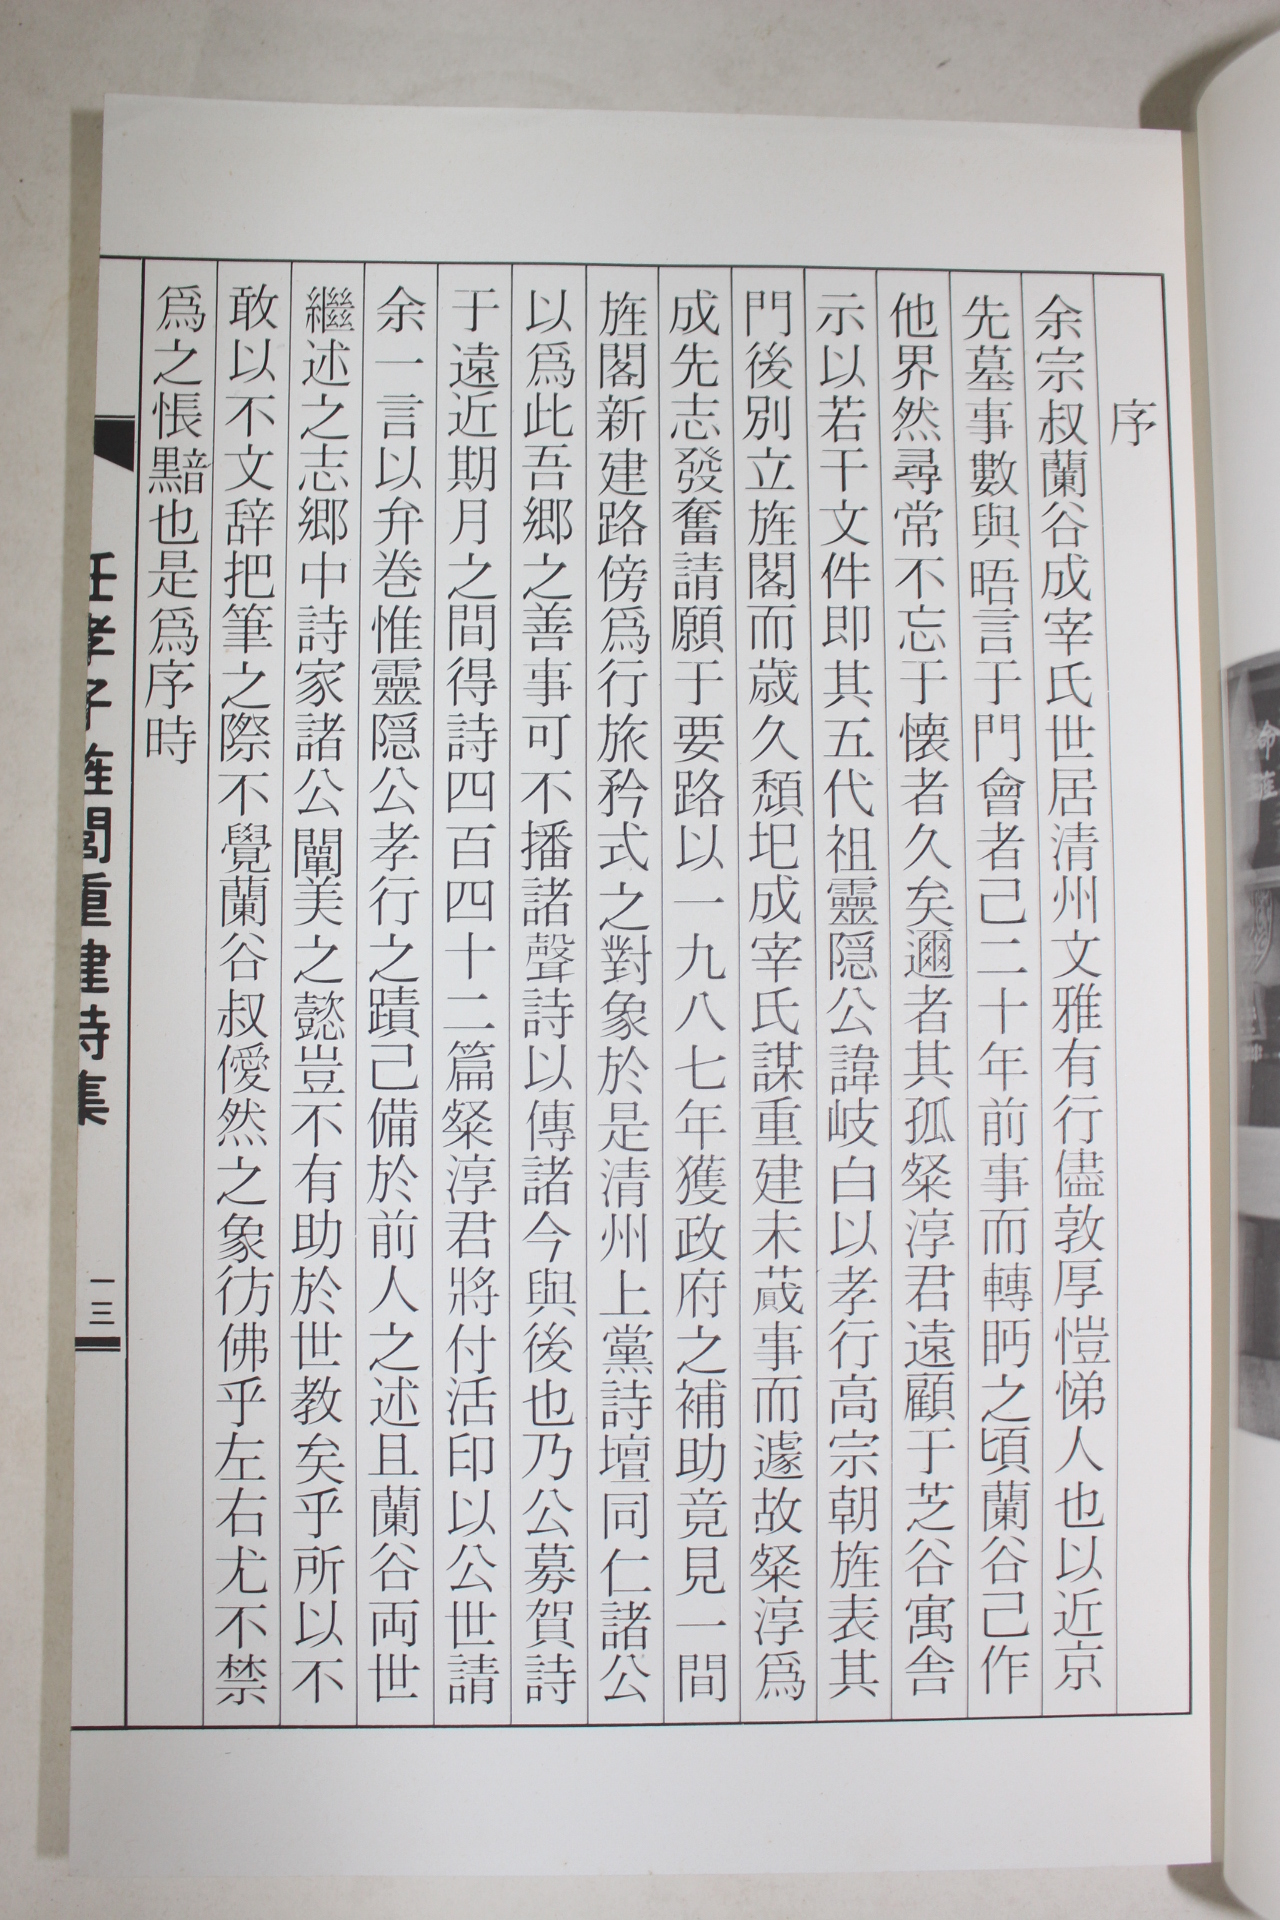 序
余宗叔蘭谷成宰氏世居清州文雅有行儘敦厚愷悌人也以近京
先墓事數與晤言于門會者己二十年前事而轉眄之頃蘭谷己作
他界然尋常不忘于懐者久矣邇者其孤粲淳君遠顧于芝谷寓舎
示以若干文件即其五代祖靈隠公諱岐白以孝行高宗朝旌表其
門後別立旌閣而歳久頽圯成宰氏謀重建未蕆事而遽故粲淳爲
成先志發奮請願于要路以一九八七年獲政府之補助竟見一間
旌閣新建路傍爲行旅矜式之對象於是清州上黨詩壇同仁諸公
以爲此吾郷之善事可不播諸聲詩以傳諸今與後也乃公募賀詩
于遠近期月之間得詩四百四十二篇粲淳君將付活印以公世請
余一言以弁巻惟靈隠公孝行之蹟己備於前人之述且蘭谷両世
繼述之志郷中詩家諸公闡美之懿豈不有助於世教矣乎所以不
敢以不文辞把筆之際不覺蘭谷叔僾然之象彷佛乎左右尤不禁
爲之悵黯也是爲序時
任孝子旌閭重建詩集
一三